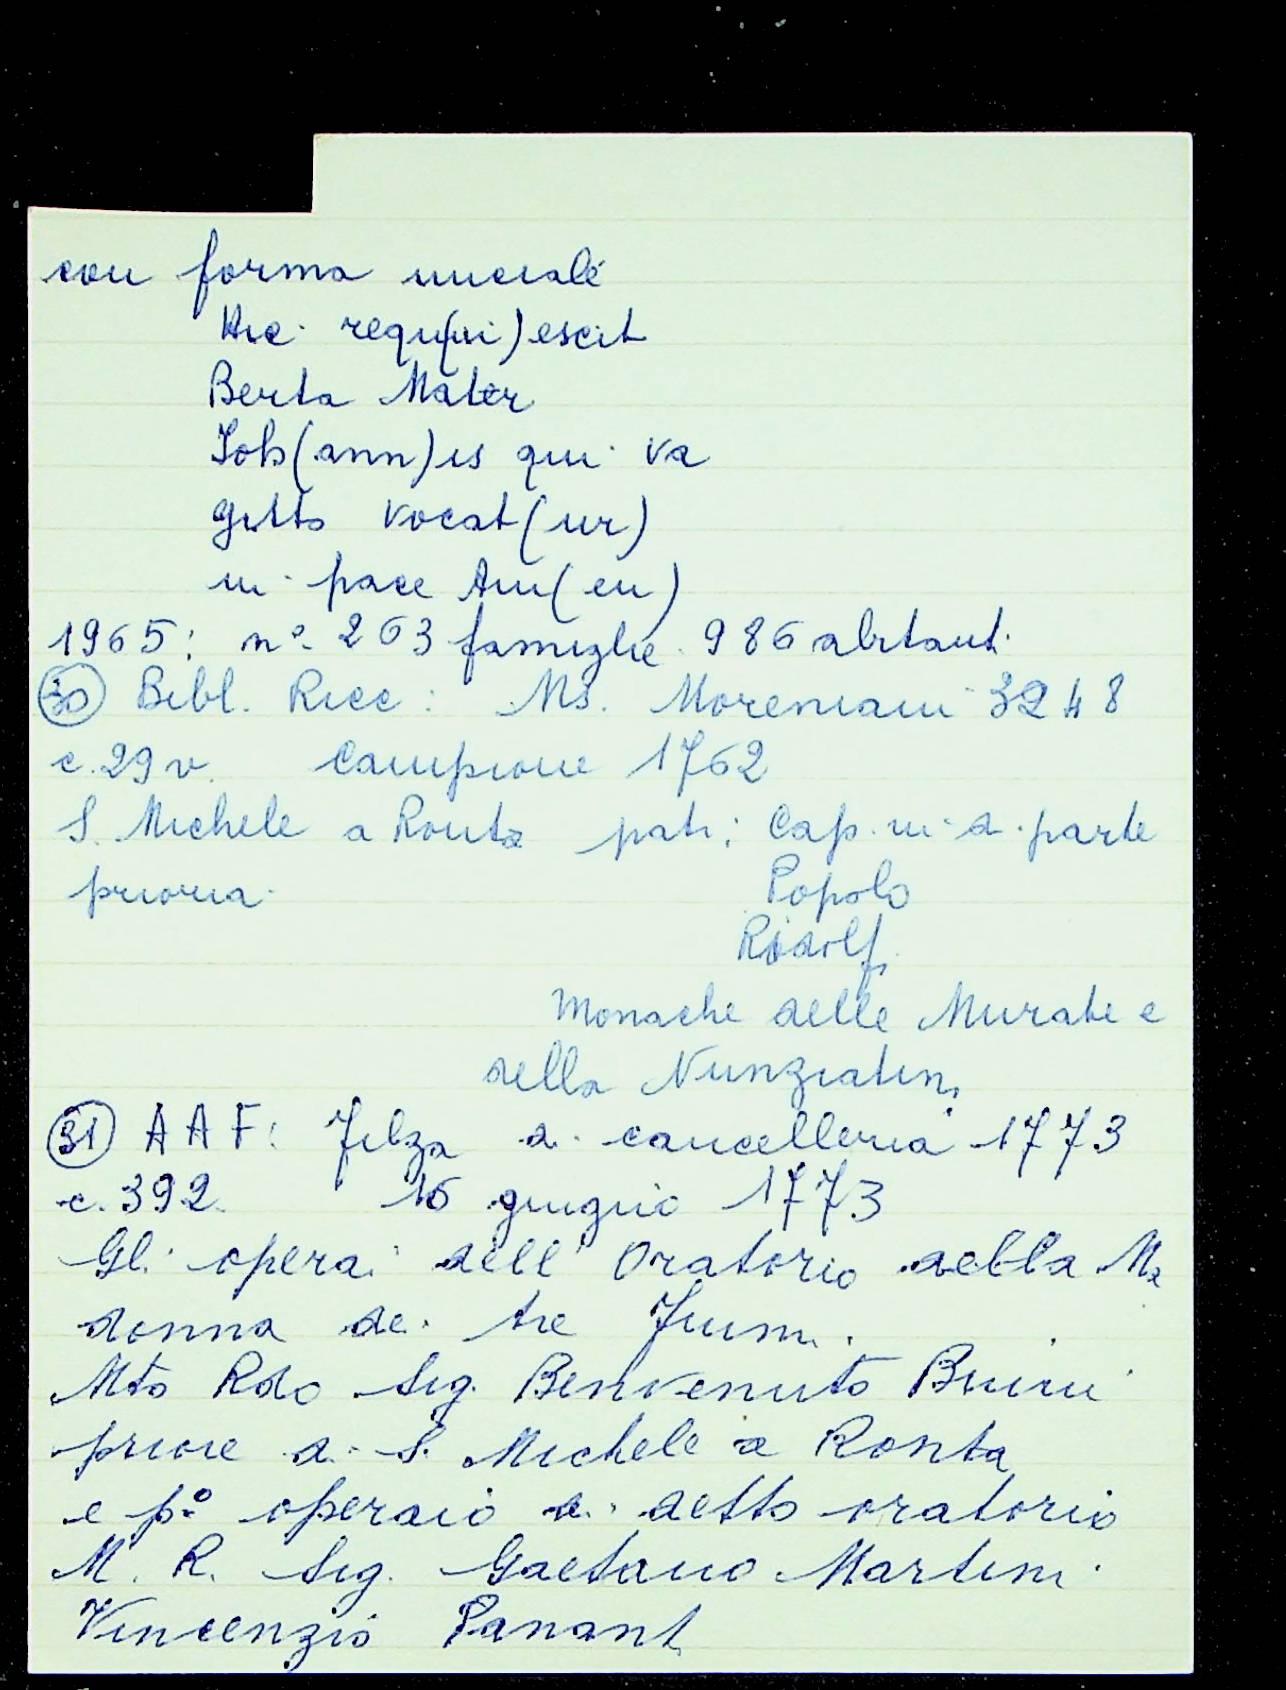 con forma unciale
Hic requ(ui)escit
Berta Mater
Joh(ann)is qui va
gitto vocat(ur)
in pace Am(en)
1965: n° 263 famiglie 986 abitanti
(30) Bibl. Ricc: Ms. Moreniani 3248
c. 29 v. Campione 1762
S. Michele a Ronta patr: Cap. ni di parte
prioria Popolo
Ridolfi
Monache delle Murate e
della Nunziatina
(31) AAF: Filza di cancelleria 1773
c. 392. 16 giugno 1773
Gli operai dell'Oratorio della Ma
donna dei tre Fiumi.
Mto Rdo Sig. Benvenuto Buini
priore di S. Michele a Ronta
e p° operaio di detto oratorio
M. R. Sig. Gaetano Martini
Vincenzio Pananti